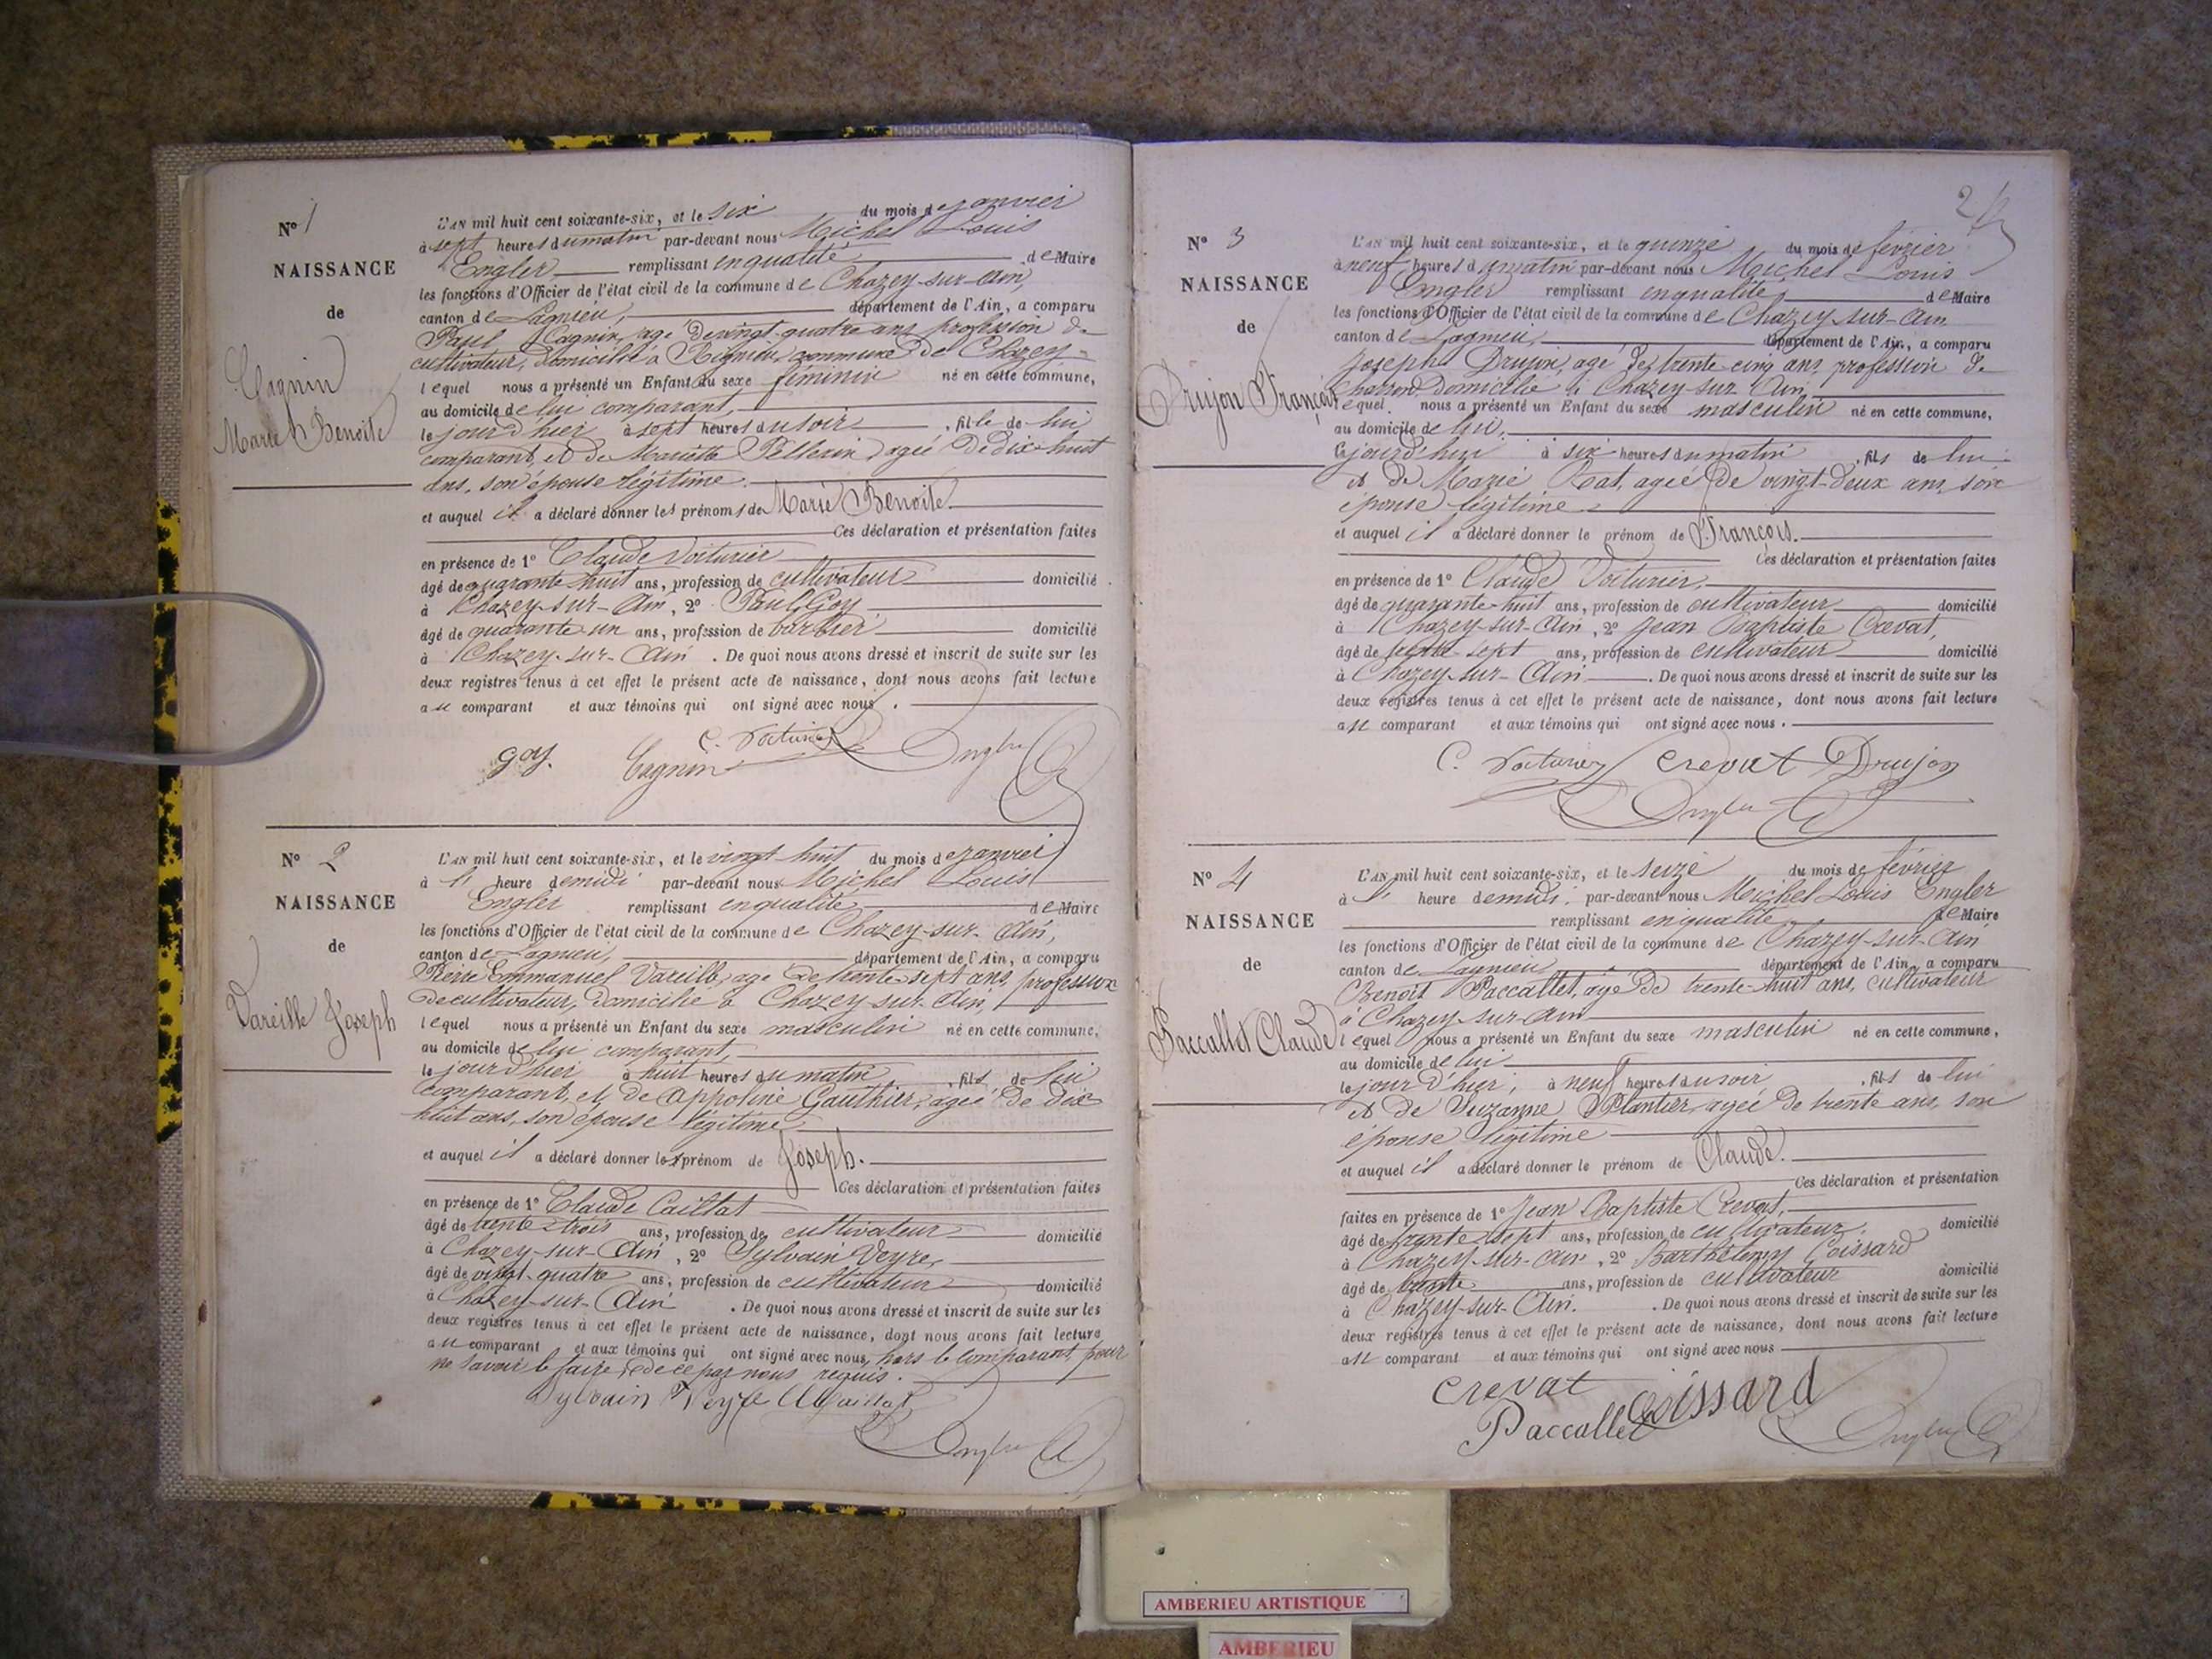 N° 1
NAISSANCE
de
Cagnin
Marie Benoite
L'AN mil huit cent soixante-six, et le six du mois de janvier
à sept heures du matin par-devant nous Michel Louis
Engler remplissant en qualité de Maire
les fonctions d'Officier de l'état civil de la commune de Chazey-sur-Ain,
canton de Lagnieu, département de l'Ain, a comparu
Paul Cagnin, age de vingt-quatre ans profession de
cultivateur, domicilié à Rignieu commune de Chazey-
lequel nous a présenté un Enfant du sexe féminin né en cette commune,
au domicile de lui comparant,
le jour d'hier à sept heures du soir , fille de lui
comparant, et de Mariette Pellerin agée de dix-huit
ans, son épouse légitime.
et auquel il a déclaré donner les prénoms de Marie Benoite.
Ces déclaration et présentation faites
en présence de 1° Claude Voiturier
âgé de quarante-huit ans, profession de cultivateur domicilié
à Chazey-sur-Ain, 2° Paul Goy
âgé de quarante-un ans, profession de barbier domicilié
à Chazey-sur-Ain . De quoi nous avons dressé et inscrit de suite sur les
deux registres tenus à cet effet le présent acte de naissance, dont nous avons fait lecture
au comparant et aux témoins qui ont signé avec nous .
goy. Cagnin C. Voiturier Engler
N° 2
NAISSANCE
de
Vareille Joseph
L'AN mil huit cent soixante-six, et le vingt-huit du mois de janvier
à l' heure de midi par-devant nous Michel Louis
Engler remplissant en qualité de Maire
les fonctions d'Officier de l'état civil de la commune de Chazey-sur-Ain,
canton de Lagnieu, département de l'Ain, a comparu
Pierre Emmanuel Vareille, age de trente-sept ans, profession
de cultivateur, domicilié à Chazey-sur-Ain,
lequel nous a présenté un Enfant du sexe masculin né en cette commune,
au domicile de lui comparant,
le jour d'hier à huit heures du matin , fils de lui
comparant, et de Appoline Gauthier, agée de dix
huit ans, son épouse légitime
et auquel il a déclaré donner les prénom de Joseph.
Ces déclaration et présentation faites
en présence de 1° Claude Caillat
âgé de trente-trois ans, profession de cultivateur domicilié
à Chazey-sur-Ain, 2° Sylvain Veyre,
âgé de vingt-quatre ans, profession de cultivateur domicilié
à Chazey-sur-Ain . De quoi nous avons dressé et inscrit de suite sur les
deux registres tenus à cet effet le présent acte de naissance, dont nous avons fait lecture
au comparant et aux témoins qui ont signé avec nous, hors le comparant, pour
ne savoir le faire de ce par nous requis.
Sylvain Veyre Caillat
Engler
2
N° 3
NAISSANCE
de
Drujon François
L'AN mil huit cent soixante-six, et le quinze du mois de février
à neuf heures du matin par-devant nous Michel Louis
Engler remplissant en qualité, de Maire
les fonctions d'Officier de l'état civil de la commune de Chazey-sur-Ain
canton de Lagnieu, département de l'Ain, a comparu
Joseph Drujon, agé de trente cinq ans, profession de
charron, domicilié à Chazey-sur-Ain,
lequel nous a présenté un Enfant du sexe masculin né en cette commune,
au domicile de lui,
le jourd'hui à six heures du matin , fils de lui
et de Marie Rat, agée de vingt-deux ans, son
épouse légitime
et auquel il a déclaré donner le prénom de François.
Ces déclaration et présentation faites
en présence de 1° Claude Voiturier,
âgé de quarante-huit ans, profession de cultivateur domicilié
à Chazey-sur-Ain, 2° Jean Baptiste Crevat,
âgé de trente-sept ans, profession de cultivateur domicilié
à Chazey-sur-Ain . De quoi nous avons dressé et inscrit de suite sur les
deux registres tenus à cet effet le présent acte de naissance, dont nous avons fait lecture
au comparant et aux témoins qui ont signé avec nous .
C. Voiturier crevat Drujon
Engler
N° 4
NAISSANCE
de
Paccallet Claude
L'AN mil huit cent soixante-six, et le seize du mois de février
à l' heure de midi, par-devant nous Michel Louis Engler
remplissant en qualité de Maire
les fonctions d'Officier de l'état civil de la commune de Chazey-sur-Ain
canton de Lagnieu département de l'Ain, a comparu
Benoit Paccallet, age de trente-huit ans, cultivateur
à Chazey-sur-Ain
lequel nous a présenté un Enfant du sexe masculin né en cette commune,
au domicile de lui
le jour d'hier, à neuf heures du soir , fils de lui
et de Suzanne Plantier, agée de trente ans, son
épouse légitime
et auquel il a déclaré donner le prénom de Claude.
Ces déclaration et présentation
faites en présence de 1° Jean Baptiste Crevat,
âgé de trente-sept ans, profession de cultivateur, domicilié
à Chazey-sur-Ain, 2° Barthélemy Coissard
âgé de trente ans, profession de cultivateur domicilié
à Chazey-sur-Ain. . De quoi nous avons dressé et inscrit de suite sur les
deux registres tenus à cet effet le présent acte de naissance, dont nous avons fait lecture
au comparant et aux témoins qui ont signé avec nous
crevat
Paccallet Coissard Engler
AMBERIEU ARTISTIQUE
AMBERIEU